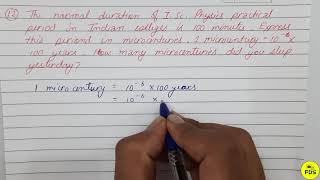 (13) The normal duration of I.Sc. Physics practical
period in Indian colleges is 100 minute. Express
this period in microcenturies. 1 microcentury = 10⁻⁶ ×
100 years. How many microcenturies did you sleep
yesterday?
1 microcentury = 10⁻⁶ × 100 years
= 10⁻⁶ ×
FDS